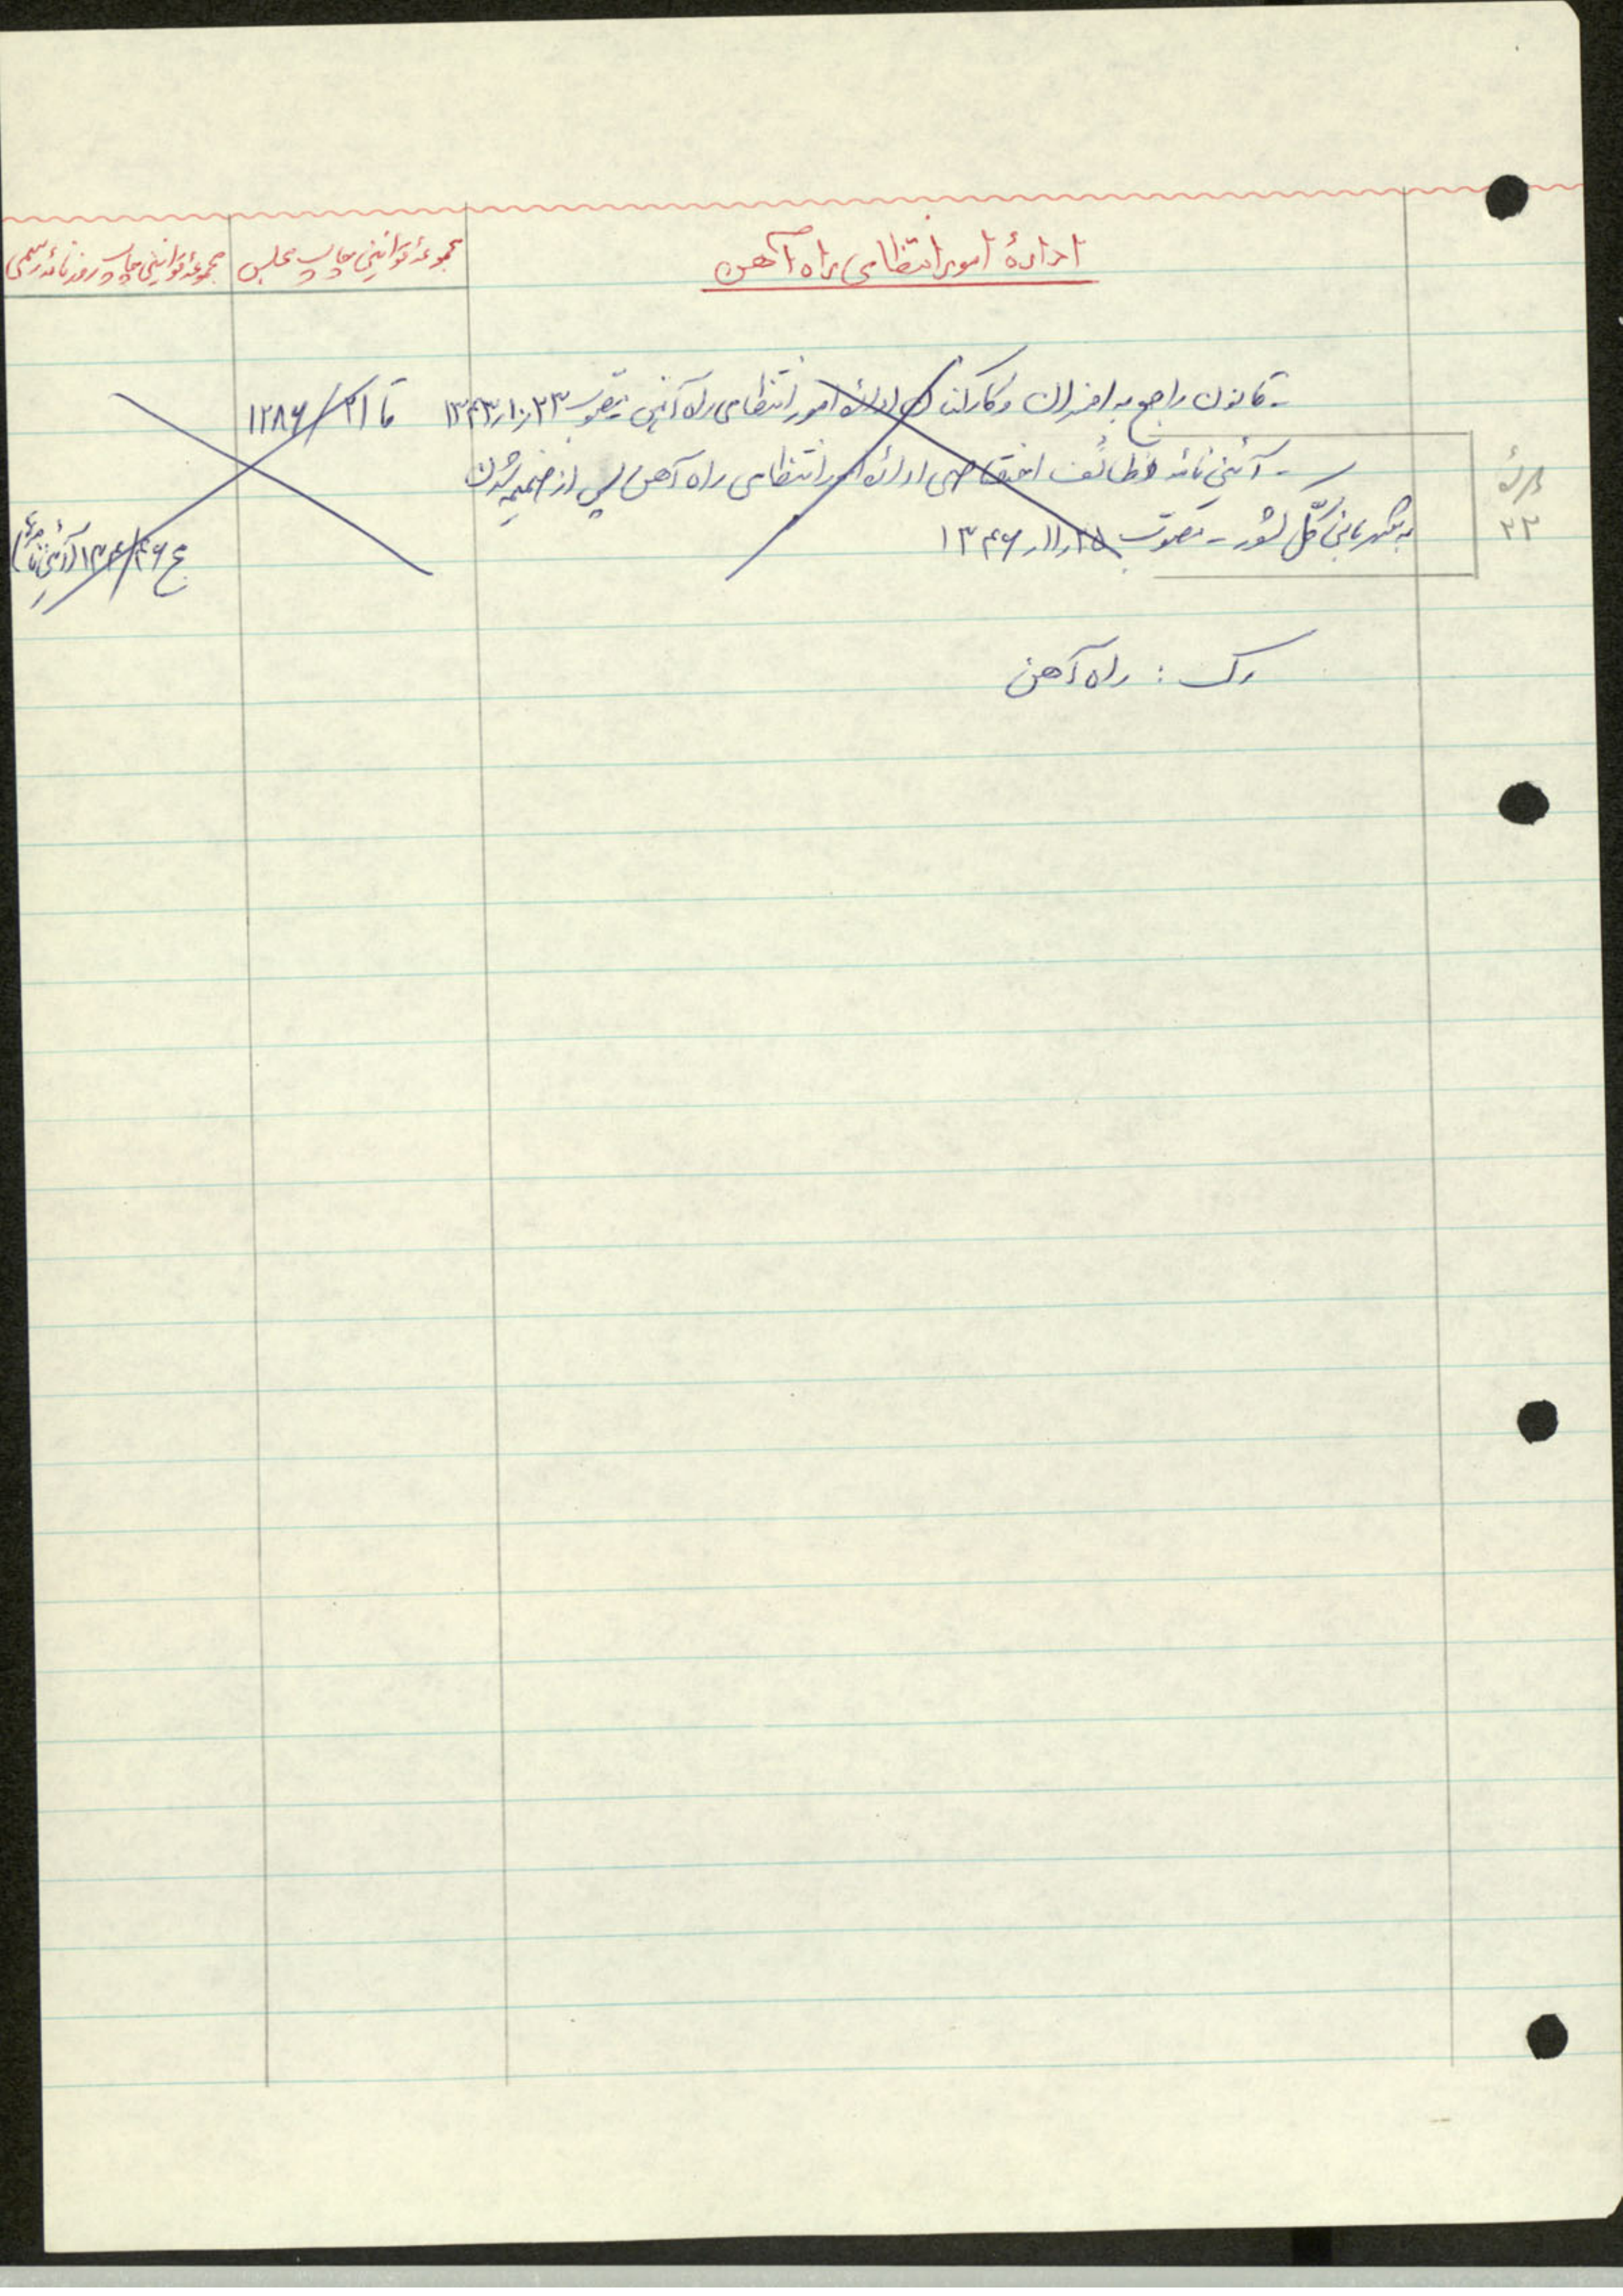 ادارهٔ امور انتظامی راه آهن
مجموعهٔ قوانین چاپ مجلس
مجموعهٔ قوانین چاپ روزنامه رسمی
- قانون راجع به افسران و کارکنان ادارهٔ امور انتظامی راه آهن مصوب ۲۳ر۱۰ر۱۳۴۳
قا ۲۱/ ۱۲۸۶
- آئین نامه وظائف اختصاصی ادارهٔ امور انتظامی راه آهن پس از ضمیمه شدن
به شهربانی کل کشور - مصوب ۲۵ر۱۱ر۱۳۴۶
۳۳
رک : راه آهن